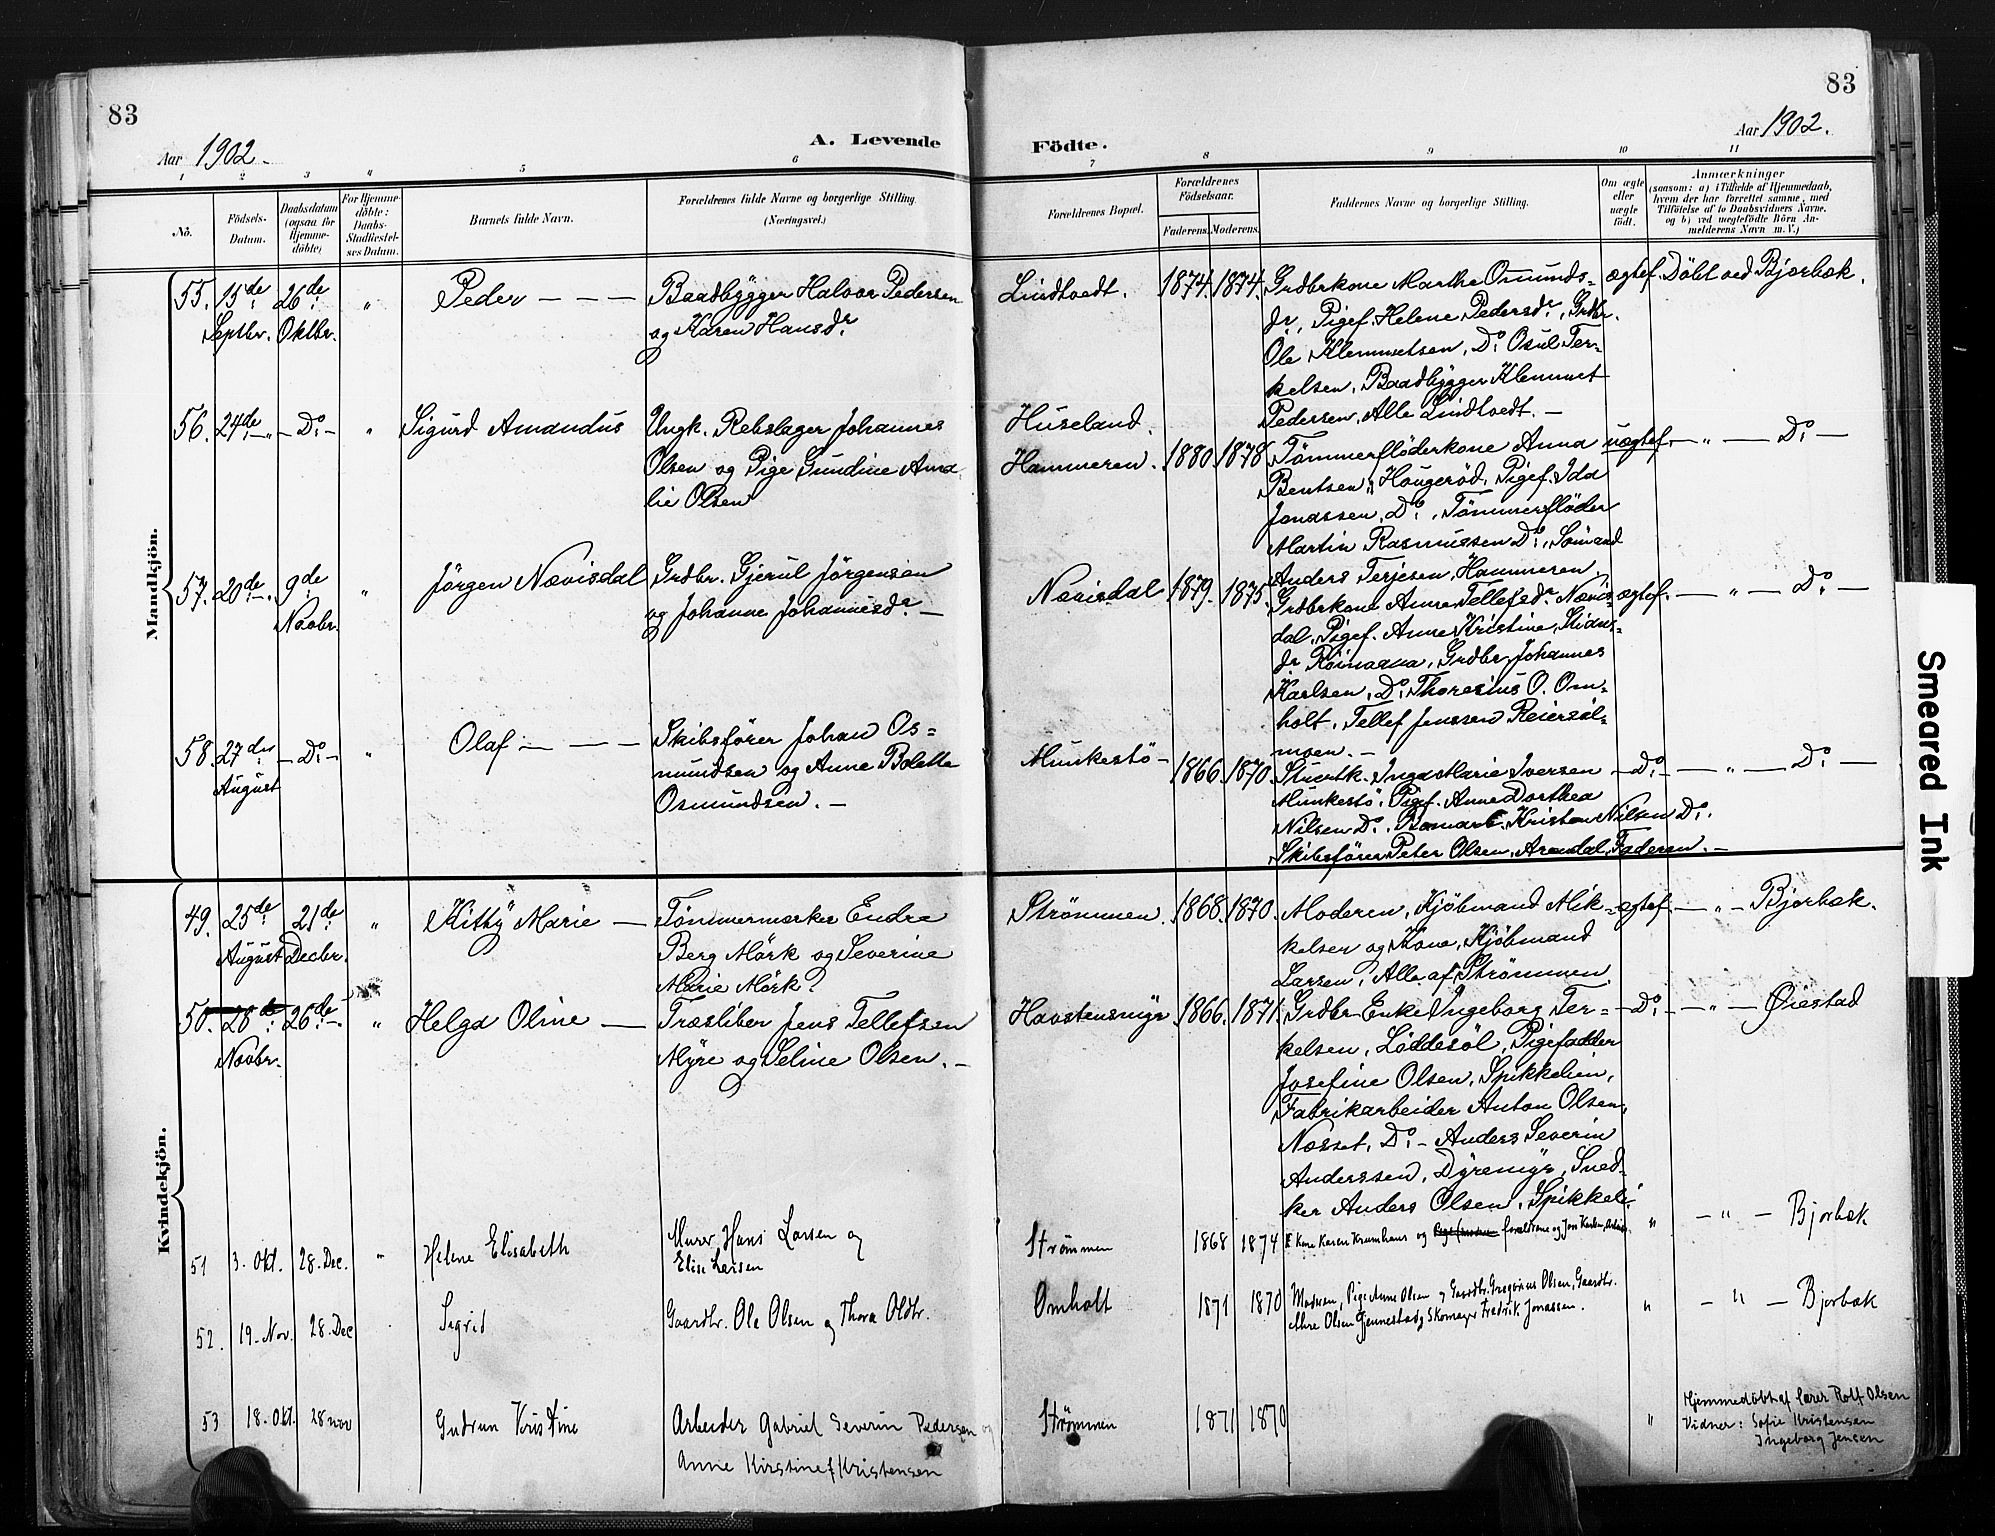 83
83
Aar 1902.
A. Levende
Födte.
Aar 1902.
1 2 3 4 5 6 7 8 9 10 11
No.
Födsels-Datum.
Daabsdatum (ogsaa for Hjemme-döbte)
For Hjemme-döbte: Daabs-Stadfæstel-ses Datum.
Barnets fulde Navn.
Forældrenes fulde Navne og borgerlige Stilling (Næringsvei.)
Forældrenes Bopæl.
Forældrenes Födselsaar.
Faderens.
Moderens.
Faddernes Navne og borgerlige Stilling.
Om ægte eller uægte födt.
Anmærkninger
(saasom: a) i Tilfælde af Hjemmedaab,
hvem der har forrettet samme, med
Tilföielse af to Daabsvidners Navne.
og b) ved uegtefödte Börn An-
melderens Navn m. V.)
Mandkjön.
55. 15de Septbr. 26de Oktbr. " Peder — — — Baadbygger Halvor Pedersen
og Karen Hansdr.
Lindtvedt. 1874. 1874. Grdbrkone Marthe Omunds-
dr, Pigef. Helene Pedersdr, Grdbr.
Ole Klemmetsen, Do. Osul Ter-
kelsen, Baadbygger Klemmet
Pedersen, Alle Lindtvedt. —
ægtef. Döbt ved Bjorbæk.
56. 24de — " — Do. — " Sigurd Amandus Ungk. Rebslager Johannes
Olsen og Pige Gundine Ama
lie Olsen
Huseland.
Hammeren. 1880. 1878. Tömmerflöderkone Anna
Bentsen, Haugeröd, Pigef. Ida
Jonassen, Do., Tömmerflöder
Martin Rasmussen Do., Sömand
Anders Terjesen, Hammeren.
uægtef. — " — Do. —
57. 20de — " . 9de Novbr. " Jörgen Nævisdal Grdbr. Gjerul Jörgensen
og Johanne Johannesdr. —
Nævisdal 1879. 1875. Grdbrkone Anne Tellefsdr. Nævis-
dal, Pigef. Anne Kristine
dr, Grdbr. Johannes
Karlsen, Do. Thoresius O. Om-
holt, Tellef Jenssen Reiersöl-
moen. —
ægtef. — " — Do. —
58. 27de August — Do. — " Olaf — — — Skibsförer Johan Os-
mundsen og Anne Bolette
Osmundsen. —
Munkestö — 1866. 1870. Inga Marie Iversen
Munkestö, Pigef. Anne Dorthea
Nilsen Do. Kristen Nilsen Do.
Skibsförer Peter Olsen, Arendal, Faderen. —
— Do. — — " — Do. —
Kvindekjön.
49. 25de August 21de Decbr. " Kitty Marie — Tömmermærker Endre
Berg Mörk og Severine
Marie Mörk?
Strömmen. 1868. 1870. Moderen, Kjöbmand Mik-
kelsen og Kone, Kjöbmand
Larsen, Alle af Strömmen
ægtef. — " — Bjorbæk.
50. 28de Novbr. 26de — " Helga Oline — Træsliber Jens Tellefsen
Myre og Seline Olsen. —
Havstensmyr 1866. 1871. Grdbr. Enke Ingeborg Ter-
kelsen, Löddesöl, Pigefadder
Josefine Olsen, Spikkelien,
Fabrikarbeider Anton Olsen,
Næsset, Do. — Anders Severin
Anderssen, Dyremyr, Sned-
ker Anders Olsen, Spikkeli.
— Do. — — " — Öiestad
51 3. Okt. 28. Dec. " Helene Elisabeth Murer Hans Larsen og
Elise Larsen
Strömmen 1868 1874 Kone Karen Krumhans og forældrene og Jens
" — " — Bjorbæk
52. 19. Nov. 28. Dec Sigrid Gaardbr. Ole Olsen og Thora Oldbr.
Omholt 1871 1870 Moderen, Pige Anne Olsen og Gaardbr. Gregorius Olsen, Gaardbr.
Olsen Gjennestad, Skomager Fredrik Jonassen.
" — " — Bjorbæk
53 18. Okt. 28 nov Gudrun Kristine Arbeider Gabriel Severin Pedersen og
Anne Kirstine f Kristensen
Strömmen 1871 1870
" Hjemmedöbt af Lærer Rolf Olsen
Vidner: Sofie Kristensen
Ingeborg Jensen
Smeared Ink